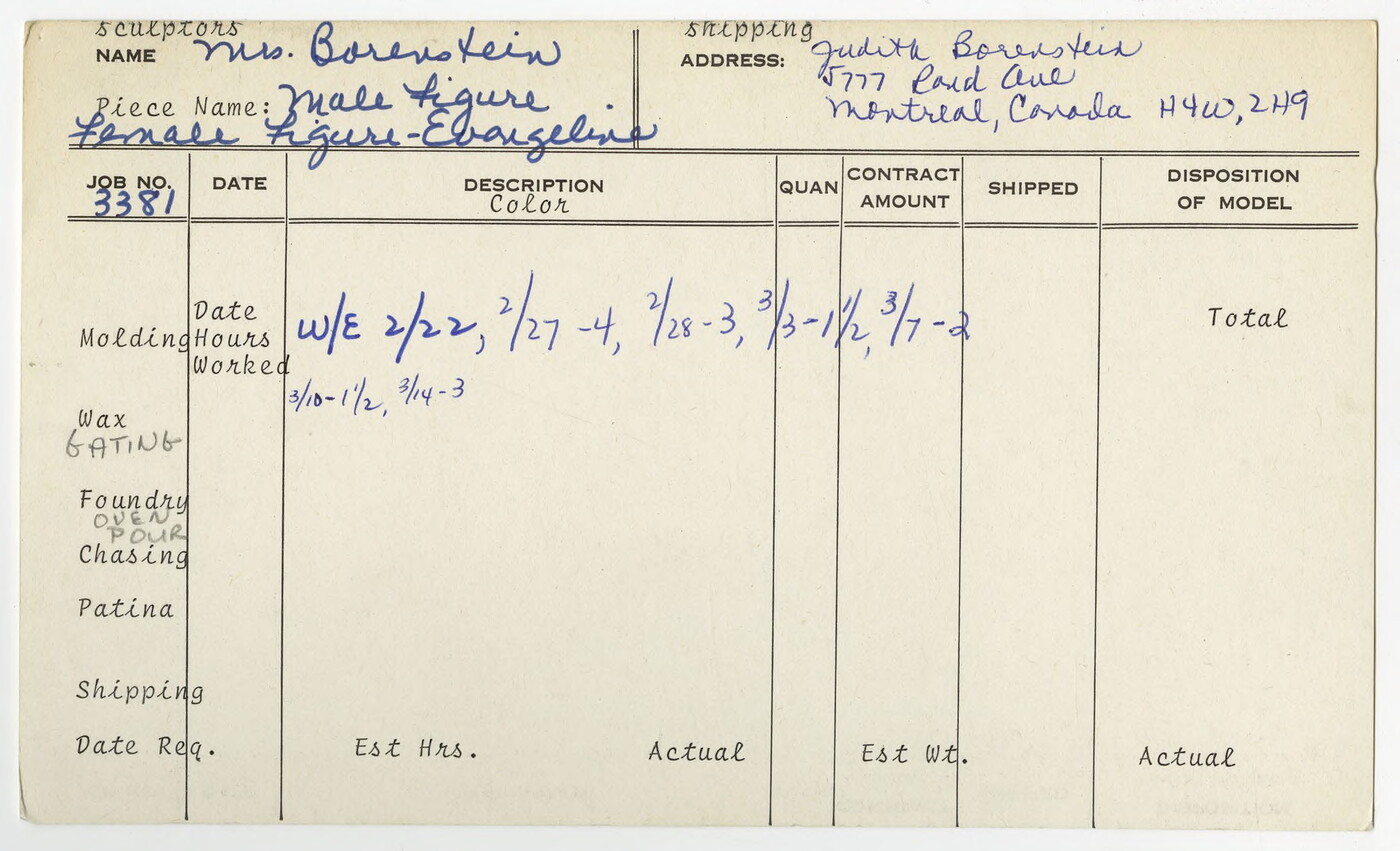 sculptors
NAME Mrs. Borenstein
Piece Name: Male Figure
Female Figure-Evangeline
shipping
ADDRESS: Judith Borenstein
5777 Rand Ave
Montreal, Canada H4W, 2H9
JOB NO. DATE DESCRIPTION QUAN CONTRACT AMOUNT SHIPPED DISPOSITION OF MODEL
3381 Color
Molding Date Hours Worked W/E 2/22, 2/27 -4, 2/28-3, 3/3-1 1/2, 3/7-2 Total
3/10-1 1/2, 3/14-3
Wax
GATING
Foundry
OVEN
POUR
Chasing
Patina
Shipping
Date Req. Est Hrs. Actual Est Wt. Actual